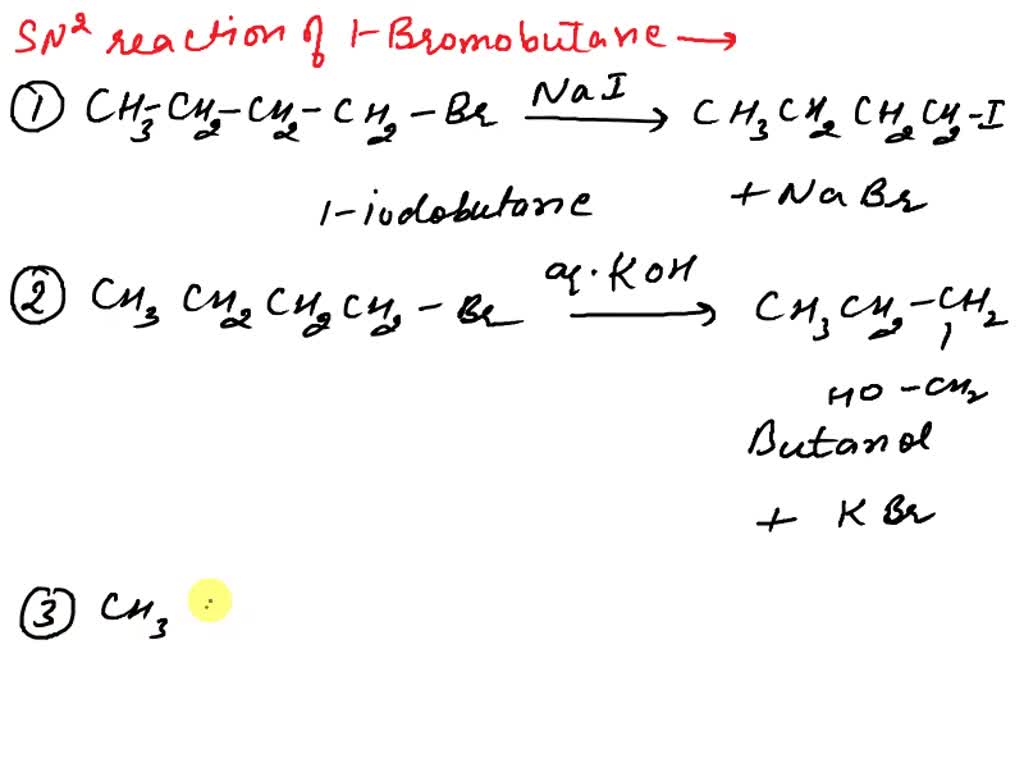 SN² reaction of 1-Bromobutane →
① CH₃-CH₂-CH₂-CH₂-Br NaI → CH₃CH₂CH₂CH₂-I
1-iodobutane + NaBr
② CH₃ CH₂ CH₂ CH₂-Br aq. KOH → CH₃CH₂-CH₂
HO-CH₂
Butanol
+ KBr
③ CH₃